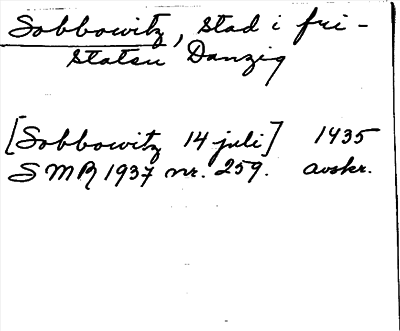 Sobbowitz, stad i fri-
staten Danzig
[Sobbowitz 14 juli] 1435
SMR 1937 nr. 259. avskr.